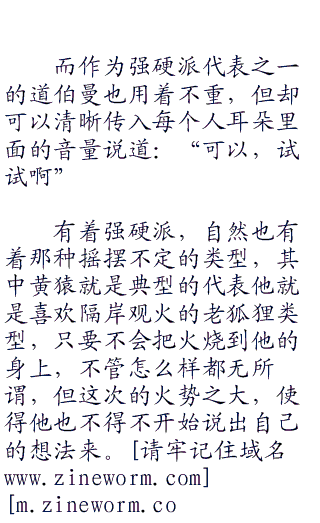 而作为强硬派代表之一
的道伯曼也用着不重，但却
可以清晰传入每个人耳朵里
面的音量说道：“可以，试
试啊”
有着强硬派，自然也有
着那种摇摆不定的类型，其
中黄猿就是典型的代表他就
是喜欢隔岸观火的老狐狸类
型，只要不会把火烧到他的
身上，不管怎么样都无所
谓，但这次的火势之大，使
得他也不得不开始说出自己
的想法来。[请牢记住域名
www.zineworm.com]
[m.zineworm.co